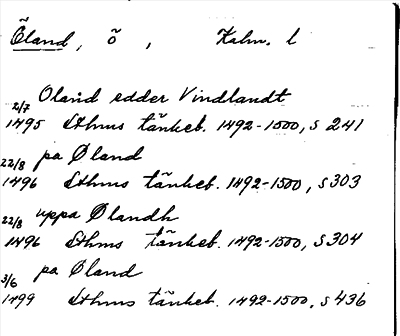 Öland, ö, Kalm. l
Oland edder Vindlandt
2/7
1495 Sthms tänkeb. 1492-1500, s 241
22/8 pa Øland
1496 Sthms tänkeb. 1492-1500, s 303
22/8 uppa Ølandh
1496 Sthms tänkeb. 1492-1500, s 304
3/6 pa Øland
1499 Sthms tänkeb. 1492-1500, s 436